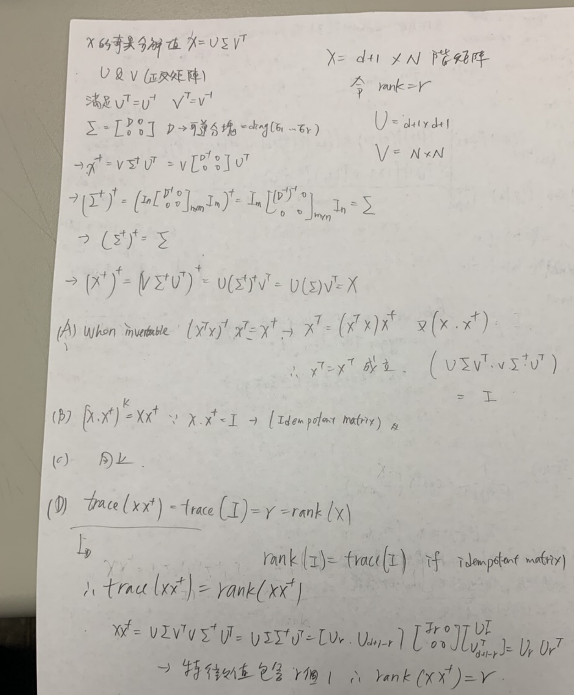 X的奇異分解值 X = UΣVᵀ
X = d+1 × N 階矩陣
U & V (正交矩陣)
令 rank = r
滿足 Uᵀ=U⁻¹ Vᵀ=V⁻¹
U = d+1×d+1
Σ = [D 0; 0 0] D → 可逆分塊 = diag(σ₁ … σr)
V = N×N
→ X⁺ = VΣ⁺Uᵀ = V[D⁻¹ 0; 0 0]Uᵀ
→ (Σ⁺)⁺ = (In[D⁻¹ 0; 0 0]n×m Im)⁺ = Im[(D⁻¹)⁻¹ 0; 0 0]m×n In = Σ
→ (Σ⁺)⁺ = Σ
→ (X⁺)⁺ = (VΣ⁺Uᵀ)⁺ = U(Σ⁺)⁺Vᵀ = U(Σ)Vᵀ = X
(A) When invertable (XᵀX)⁻¹Xᵀ = X⁺ → Xᵀ = (XᵀX)X⁺ 又(X.X⁺)
∴ Xᵀ = Xᵀ 成立. (UΣVᵀ.VΣ⁺Uᵀ)
= I
(B) (X.X⁺)ᵏ = XX⁺ ∵ X.X⁺ = I → (Idempotent matrix)
(C) 同上.
(D) trace(XX⁺) = trace(I) = r = rank(X)
rank(I) = trace(I) if idempotent matrix)
∴ trace(XX⁺) = rank(XX⁺)
XX⁺ = UΣVᵀVΣ⁺Uᵀ = UΣΣ⁺Uᵀ = [Ur Ud+1-r][Ir 0; 0 0][Urᵀ; Uᵀd+1-r] = UrUrᵀ
→ 特徵值包含 r個 1 ∴ rank(XX⁺) = r.